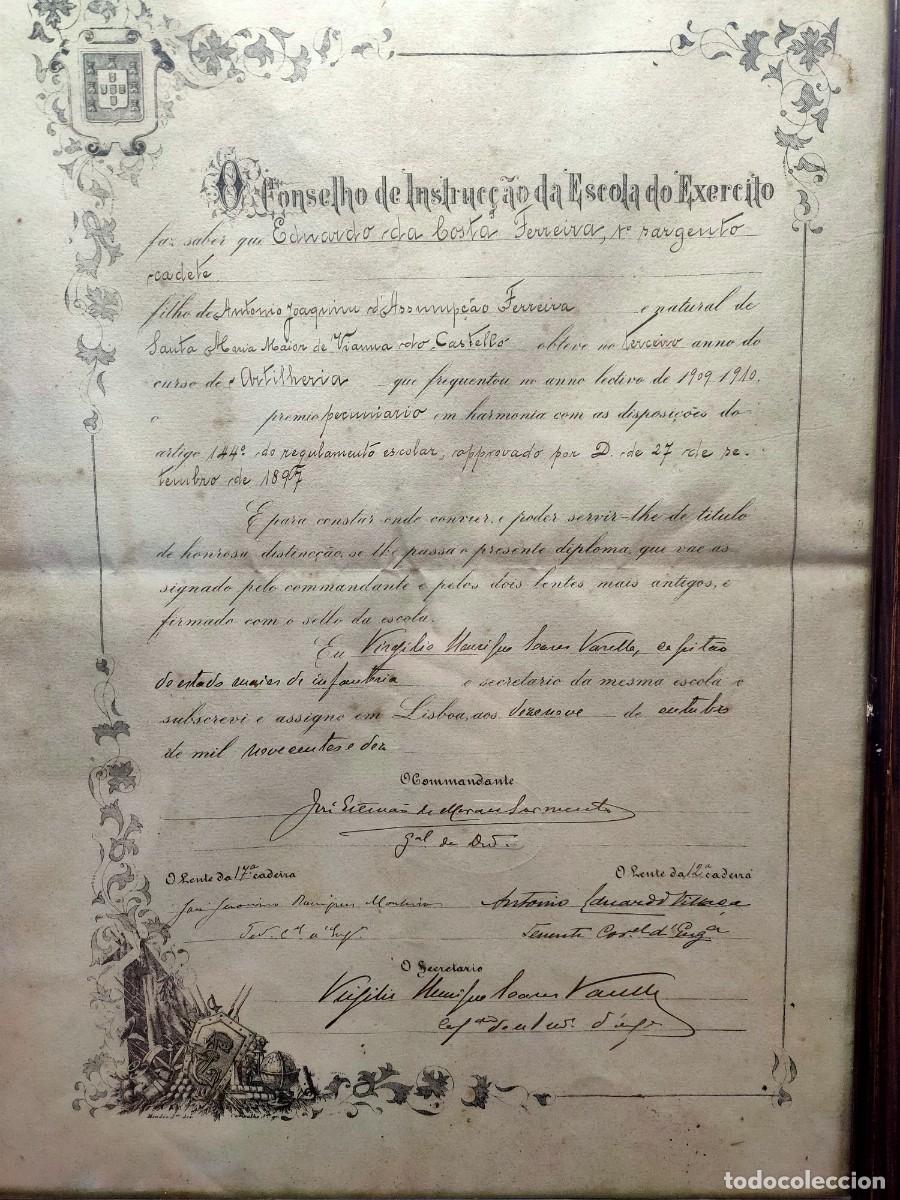 O Conselho de Instrucção da Escola do Exercito
faz saber que Eduardo da Costa Ferreira, 1º sargento
cadete
filho de Antonio Joaquim d'Assumpção Ferreira e natural de
Santa Maria Maior de Vianna do Castello obteve no terceiro anno do
curso de Artilheria que frequentou no anno lectivo de 1909-1910,
o premio pecuniario em harmonia com as disposições do
artigo 144º do regulamento escolar, approvado por D. de 27 de se-
tembro de 1897
E para constar onde convier, e poder servir-lhe de titulo
de honrosa distincção, se lhe passa o presente diploma, que vae as
signado pelo commandante e pelos dois lentes mais antigos, e
firmado com o sello da escola.
Eu Virgilio Henrique Soares Varella, capitão
do estado maior de infantaria e secretario da mesma escola o
subscrevi e assigno em Lisboa, aos dezenove de outubro
de mil novecentos e dez
O Commandante
José Estevão de Moraes Sarmento
Gal de Div.
O Lente da 17ª cadeira
O Lente da 12ª cadeira
Rodrigues Monteiro
Antonio Eduardo Villaça
Tenente Corel d'Enga
O Secretario
Virgilio Henrique Soares Varella
todocoleccion